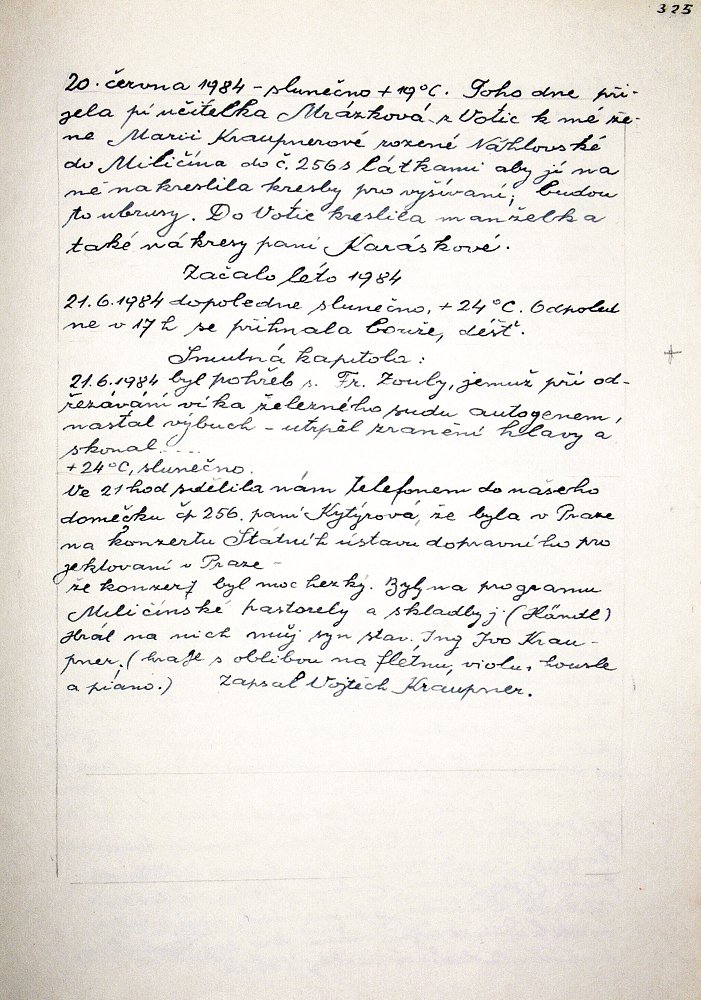 325
20. června 1984 - slunečno + 19°C. Toho dne při-
jela pí učitelka Mrázková z Votic k mé že-
ne Marii Kraupnerové rozené Náhlovské
do Miličína do č. 256 s látkami aby jí na
ně nakreslila kresby pro vyšívaní; budou
to ubrusy. Do Votic kreslila manželka
také nákresy paní Karáskové.
Začalo léto 1984
21.6.1984 dopoledne slunečno, + 24°C. Odpoled
ne v 17 h se přihnala bouře, déšť.
Smutná kapitola:
21.6.1984 byl pohřeb s. Fr. Zouly, jemuž při od-
řezávání víka železného sudu autogenem,
nastal výbuch - utrpěl zranění hlavy a
skonal....
+ 24°C, slunečno.
Ve 21 hod sdělila nám telefonem do našeho
domečku čp 256. paní Kytýrová, že byla v Praze
na konzertu Státních ústavu dopravního pro
jektovaní v Praze -
že konzert byl moc hezký. Byly na programu
Miličínské pastorely a skladby j. (Händl)
Hrál na nich můj syn stav. Ing Ivo Krau-
pner. (hraje s oblibou na flétnu, violu, housle
a piáno.) Zapsal Vojtěch Kraupner.